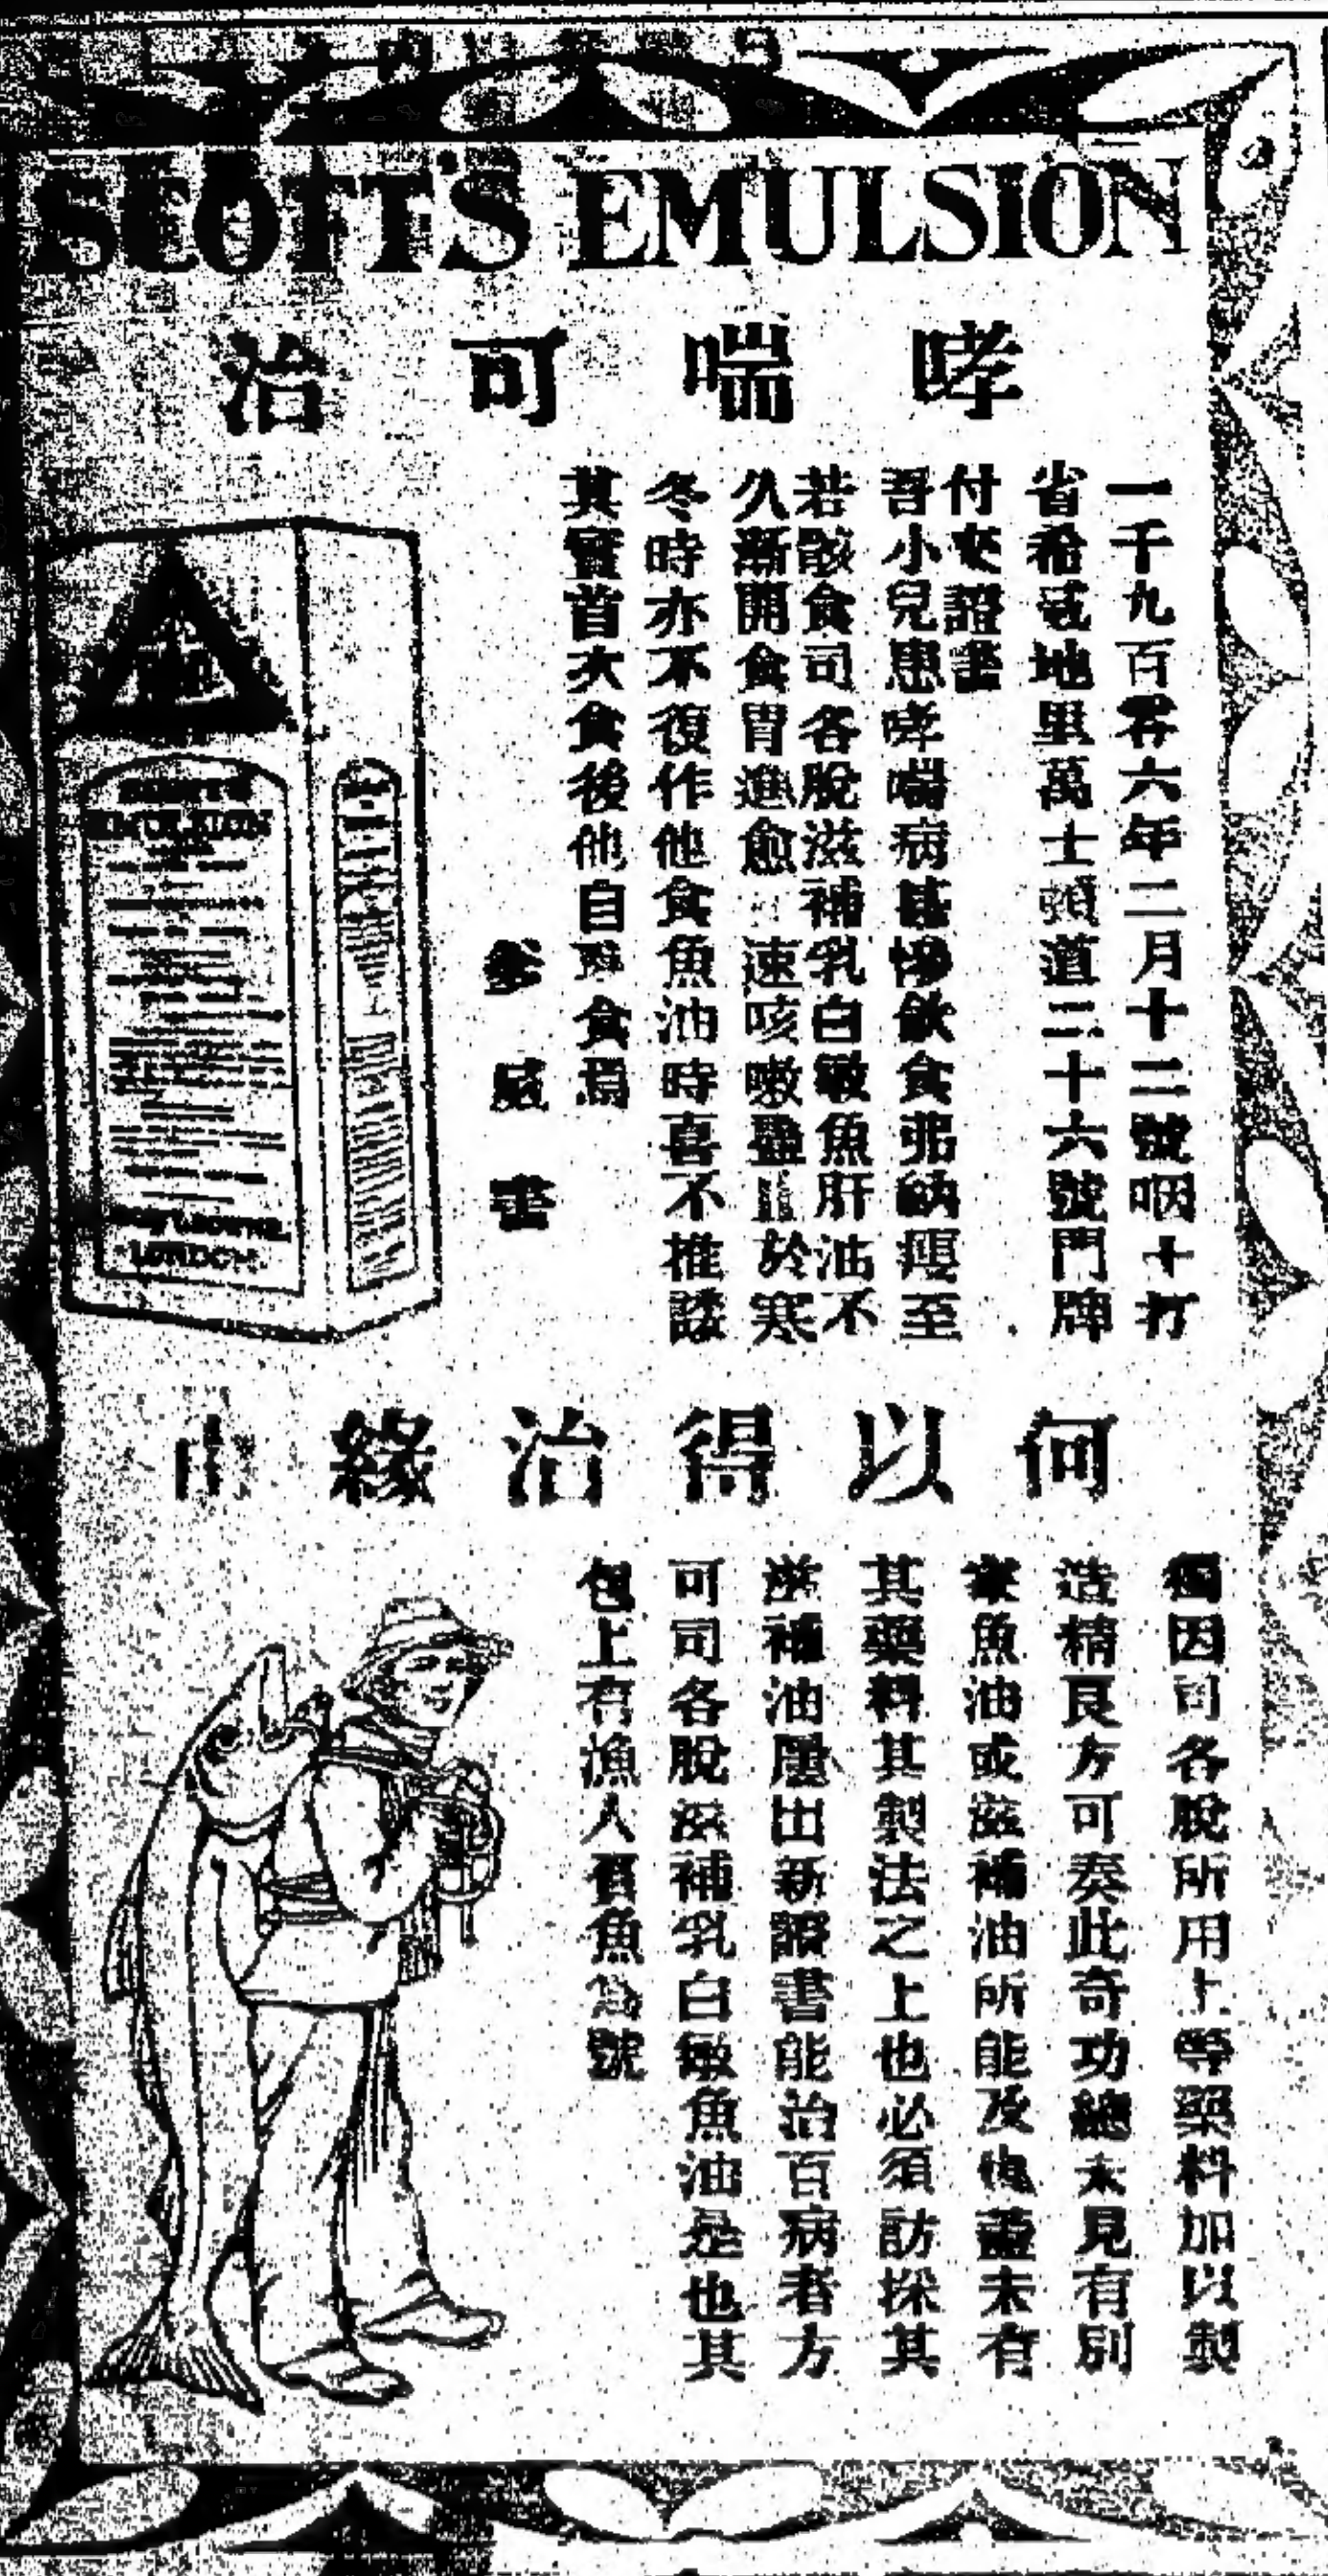 SCOTT'S EMULSION
哮喘可治
一千九百零六年二月十二號咽十打
省希威地里萬士頓道二十六號門牌
付來證書
吾小兒患哮喘病甚慘飲食弗納瘦至
若骸食司各脫滋補乳白鰵魚肝油不
久漸開食胃進愈 速咳嗽盡 於寒
冬時亦不復作他食魚油時喜不推諉
其實首次食後他自 食焉
參威書
何以得治緣由
獨因司各脫所用上等藥料加以製
造精良方可奏此奇功總未見有別
家魚油或滋補油所能及也蓋未有
其藥料其製法之上也必須訪採其
滋補油屢出新證書能治百病者方
可司各脫滋補乳白鰵魚油是也其
包上有漁人負魚為號
LONDON